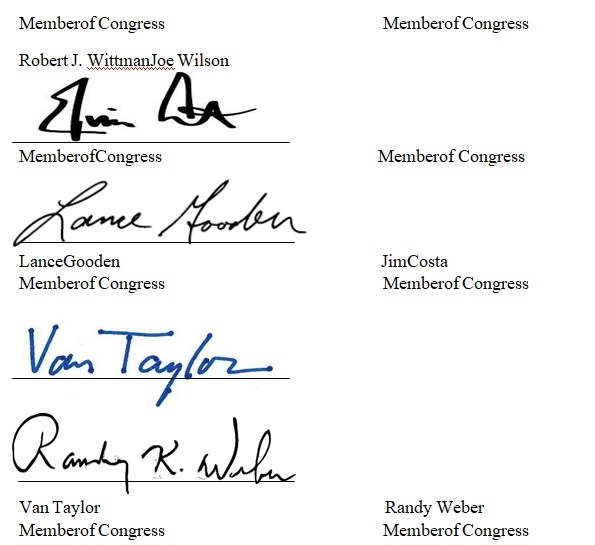 Memberof Congress Memberof Congress
Robert J. WittmanJoe Wilson
MemberofCongress Memberof Congress
Lance Gooden
LanceGooden JimCosta
Memberof Congress Memberof Congress
Van Taylor
Randy K. Weber
Van Taylor Randy Weber
Memberof Congress Memberof Congress